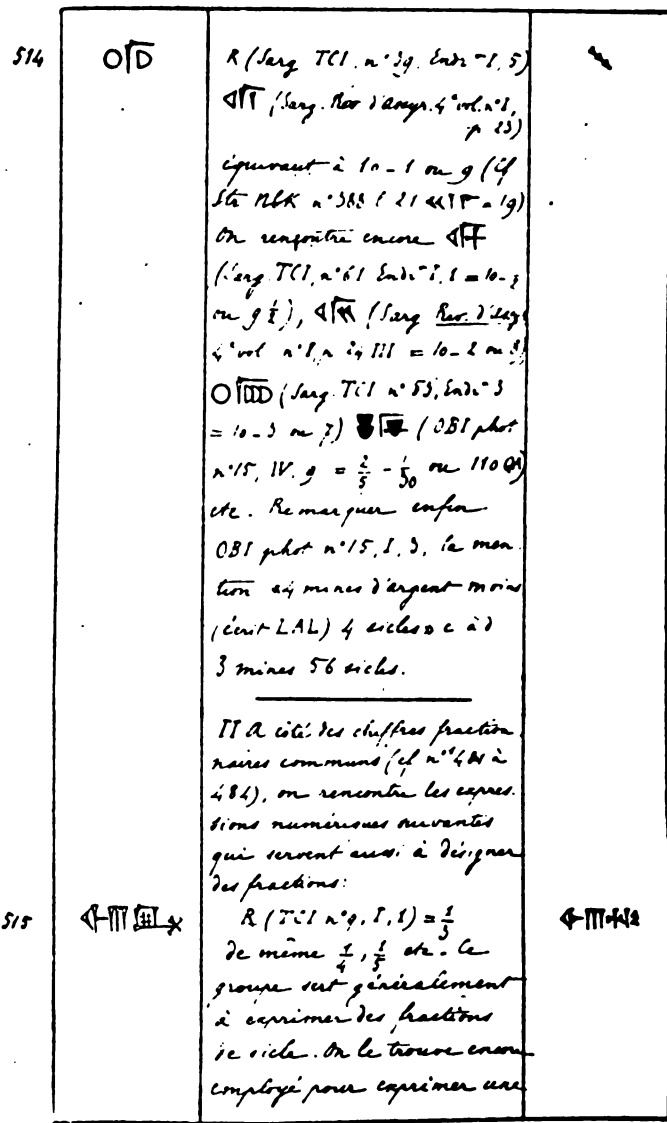 514
R (Sarg. TCI. n° 39. Endr. I, 5)
(Sarg. Rev d'assyr. 4° vol. n° I,
p 23)
équivaut à 10 - 1 ou 9 (cf
Str NbK n° 388 l 21 = 19)
On rencontre encore
(Sarg. TCI, n° 61 = 10 -
ou 9 ½), (Sarg Rev. d'assy
4° vol n° I, III = 10 - 2 ou 8)
(Sarg. TCI n° 53, Endr. 3
= 10 - 3 ou 7) (OBI phot
n° 15, IV. 9 = 2/5 - 1/30 ou 110 QA)
etc. Remarquer enfin
OBI phot n° 15, I, 3, la men
tion «4 mines d'argent moins
(écrit LAL) 4 sicles» c à d
3 mines 56 sicles.
II A côté des chiffres fraction
naires communs (cf n°s 481 à
484), on rencontre les expres.
sions numériques suivantes
qui servent aussi à désigner
des fractions:
515
R (TCI n° 9, I, 1) = 1/3
de même 1/4, 1/5 etc. Ce
groupe sert généralement
à exprimer des fractions
de sicle. On le trouve encore
employé pour exprimer une